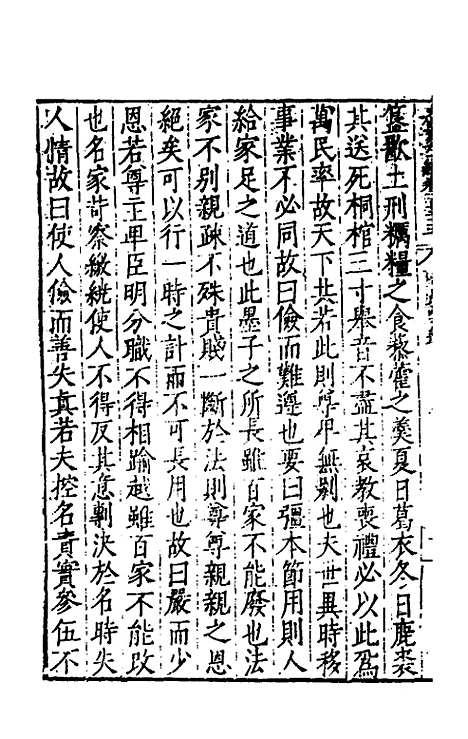 簋歠土刑糲糧之食藜藿之羹夏日葛衣冬日鹿裘
其送死桐棺三寸舉音不盡其哀教喪禮必以此爲
萬民率故天下共若此則尊卑無别也夫世異時移
事業不必同故曰儉而難遵也要曰彊本節用則人
給家足之道也此墨子之所長雖百家不能廢也法
家不别親疎不殊貴賤一斷於法則尊尊親親之恩
絕矣可以行一時之計而不可長用也故曰嚴而少
恩若尊主卑臣明分職不得相踰越雖百家不能改
也名家苛察繳繞使人不得反其意剸決於名時失
人情故曰使人儉而善失真若夫控名責實參伍不